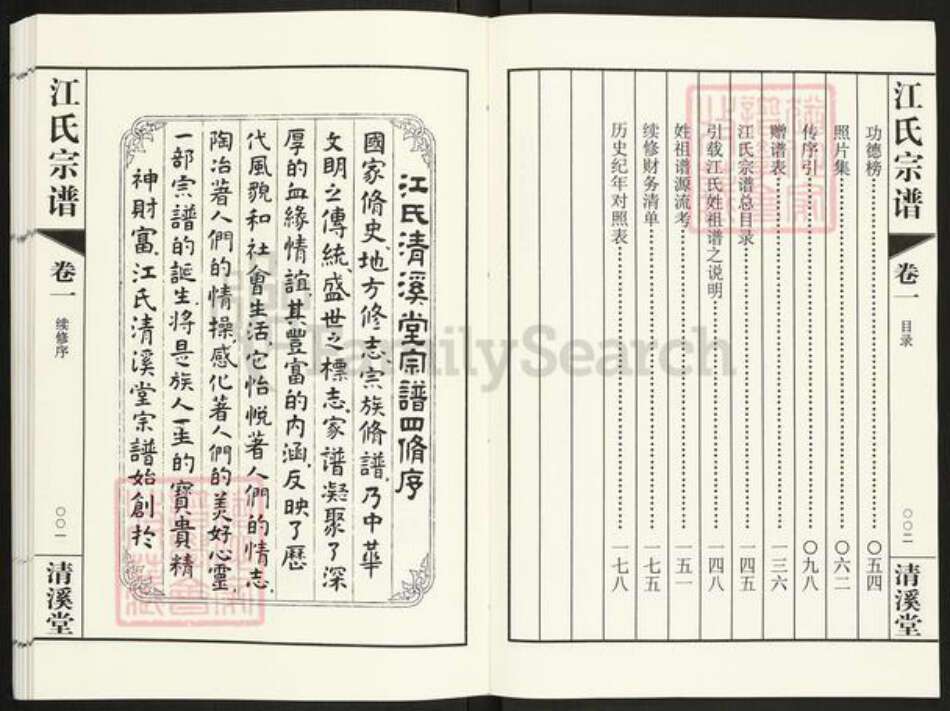 江氏宗谱
卷一
目录
〇〇二
清溪堂
功德榜……〇五四
照片集……〇六二
传序引……〇九八
赠谱表……一三六
江氏宗谱总目录……一四五
引载江氏姓祖谱之说明……一四八
姓祖谱源流考……一五一
续修财务清单……一七五
历史纪年对照表……一七八
江氏清溪堂宗譜四脩序
國家脩史、地方修志、宗族脩譜、乃中華
文明之傳統、盛世之標志、家譜凝聚了深
厚的血緣情誼、其豐富的内涵、反映了歷
代風貌和社會生活、它怡悦著人們的情志、
陶冶著人們的情操、感化著人們的美好心靈、
一部宗譜的誕生、將是族人一生的寶貴精
神財富、江氏清溪堂宗譜始創於
江氏宗谱
卷一
续修序
〇〇一
清溪堂
FamilySearch